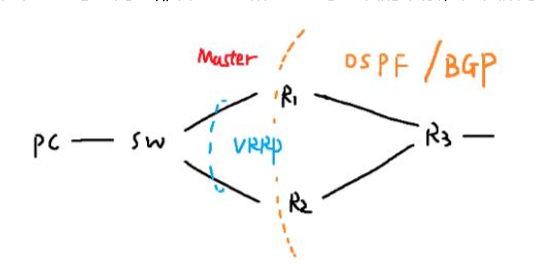 Master
OSPF / BGP
R1
PC — SW
VRRP
R3 —
R2